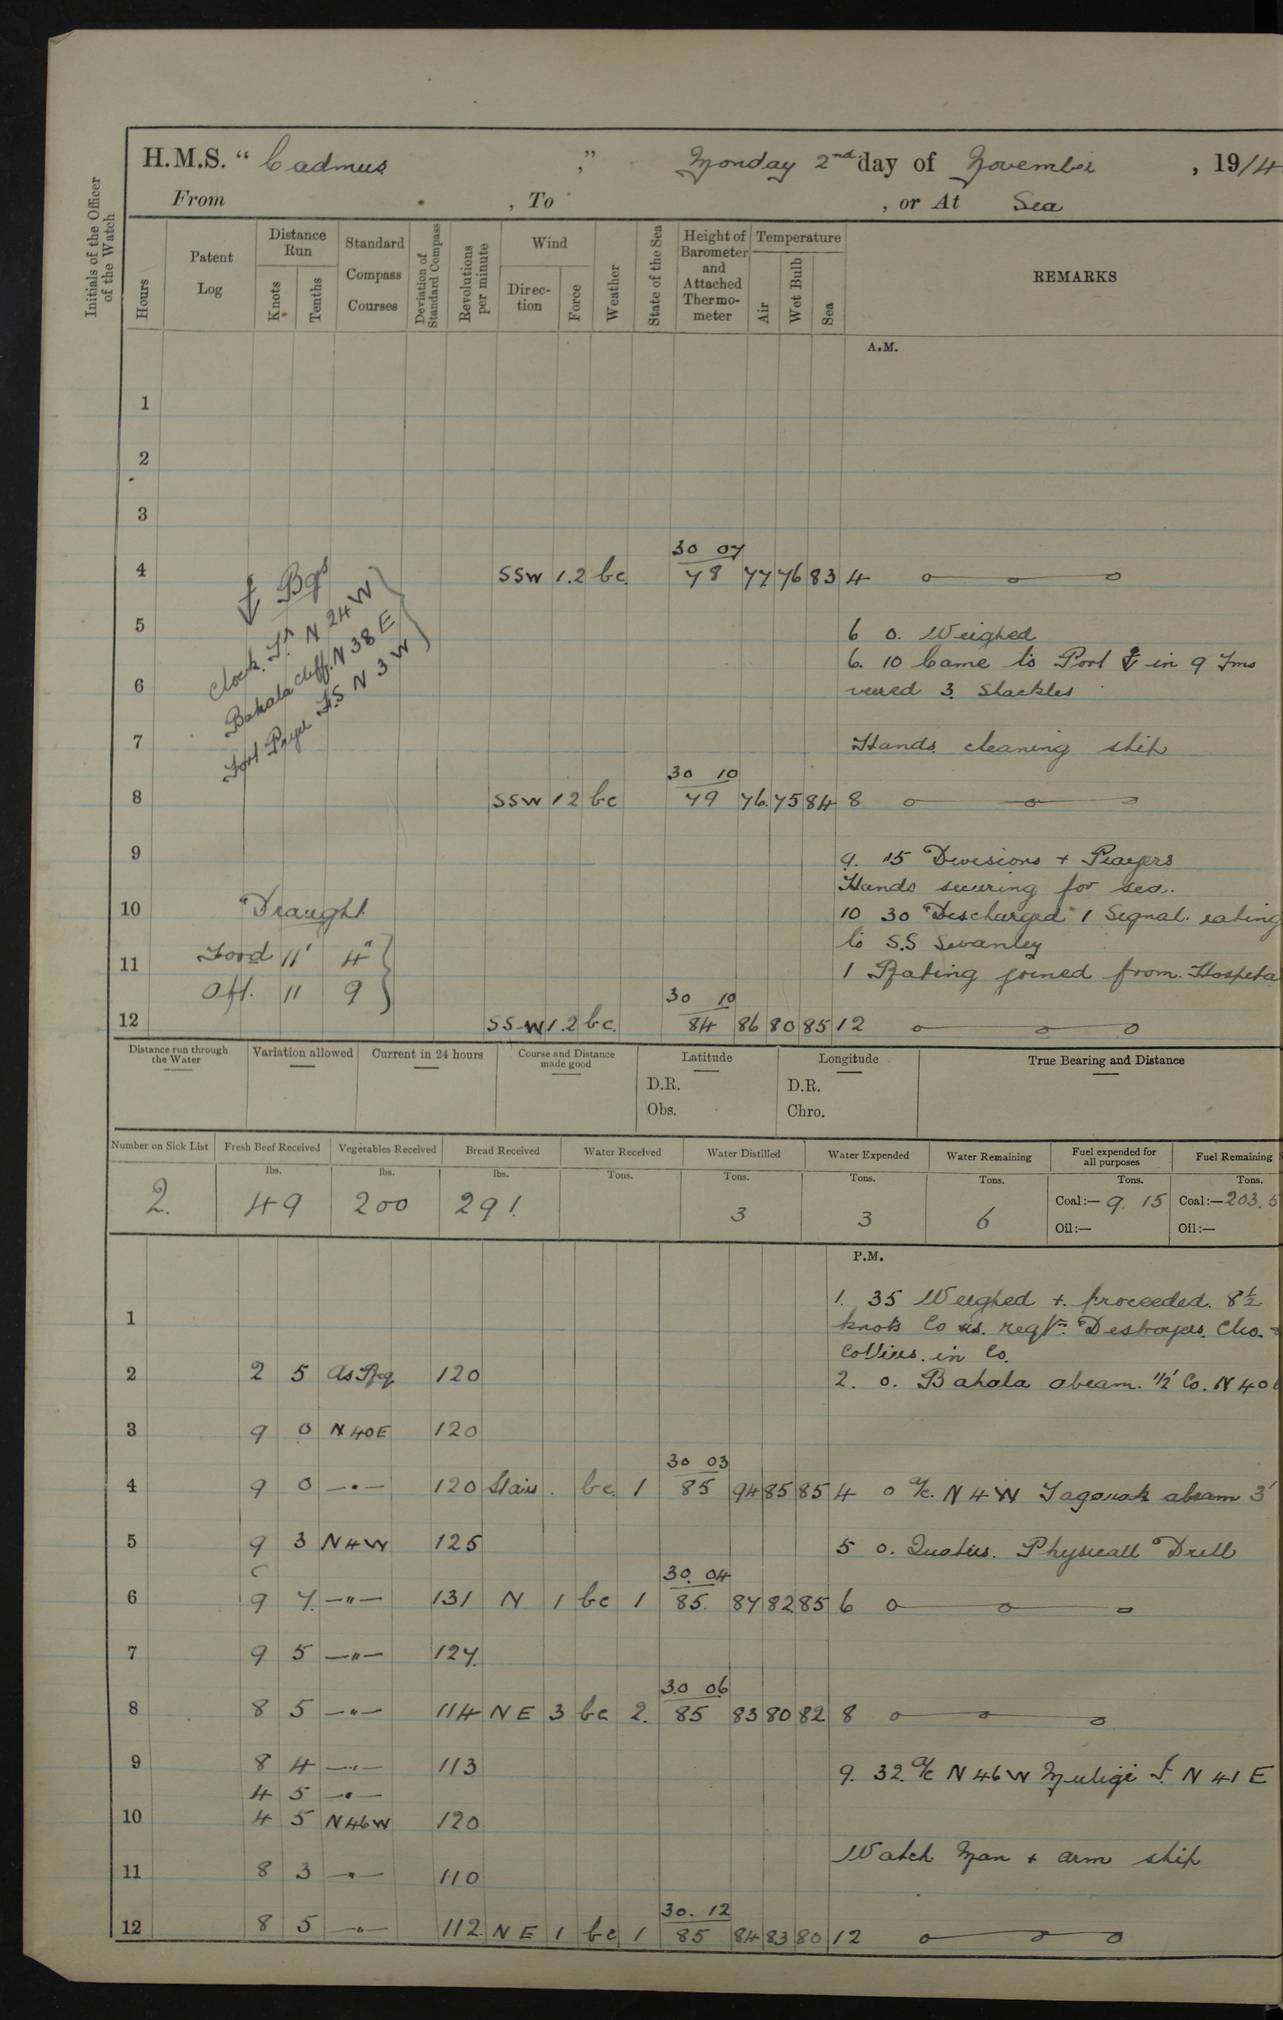 H.M.S. “ Cadmus ,” Monday 2nd day of November , 1914
From , To , or At Sea
Initials of the Officer of the Watch
Hours
Patent Log
Distance Run
Knots
Tenths
Standard Compass Courses
Deviation of Standard Compass
Revolutions per minute
Wind
Direction
Force
Weather
State of the Sea
Height of Barometer and Attached Thermometer
Temperature
Air
Wet Bulb
Sea
REMARKS
A.M.
1
2
3
30 07
4 SSW 1.2 bc. 78 77 76 83 4
Bgs
Clock Tr. N 24 W
Bakala Cliff. N 38 E
Fort Pryer F.S N 3 W
5
6 0. Weighed
6. 10 Came to Port in 9 Fms
6 veered 3. Shackles
7 Hands cleaning ship
30 10
8 SSW 1 2 bc 79 76. 75 84 8
9
9. 15 Divisions + Prayers
Hands securing for sea.
10 Draught 10 30 "Discharged" 1 Signal. rating
to S.S Swanley
11 Forrd 11' 4"
1 Rating joined from Hospita
Aft. 11 9
30 10
12 SSW 1.2 bc. 84 86 80 85 12
Distance run through the Water
Variation allowed
Current in 24 hours
Course and Distance made good
Latitude
D.R.
Obs.
Longitude
D.R.
Chro.
True Bearing and Distance
Number on Sick List
Fresh Beef Received
Vegetables Received
Bread Received
Water Received
Water Distilled
Water Expended
Water Remaining
Fuel expended for all purposes
Fuel Remaining
lbs. lbs. lbs. Tons. Tons. Tons. Tons. Tons. Tons.
2. 49 200 291. 3 3 6 Coal:— 9. 15 Coal:—203.5
Oil:— Oil:—
P.M.
1. 35 Weighed + proceeded. 8½
1 knots Co as. reqd. Destroyers. Cho. +
Colliers. in Co.
2 2 5 As Req 120 2. 0. Bakala abeam. 1½' Co. N 40
3 9 0 N 40E 120
30 03
4 9 0 —"— 120 bc. 1 85 94 85 85 4 0 a/c. N 4 W abeam 3'
5 9 3 N 4 W 125 5 0. Quarters. Physicall Drill
30. 04
6 9 7. —"— 131 N 1 bc 1 85. 87 82 85 6
7 9 5 —"— 127.
30 06
8 8 5 —"— 114 NE 3 bc 2. 85 83 80 82 8
9 8 4 —"— 113 9. 32. a/c N 46 W N 41 E
4 5 —"—
10 4 5 N46W 120
Watch Man + arm ship
11 8 3 —"— 110
30. 12
12 8 5 —"— 112. NE 1 bc 1 85 84 83 80 12